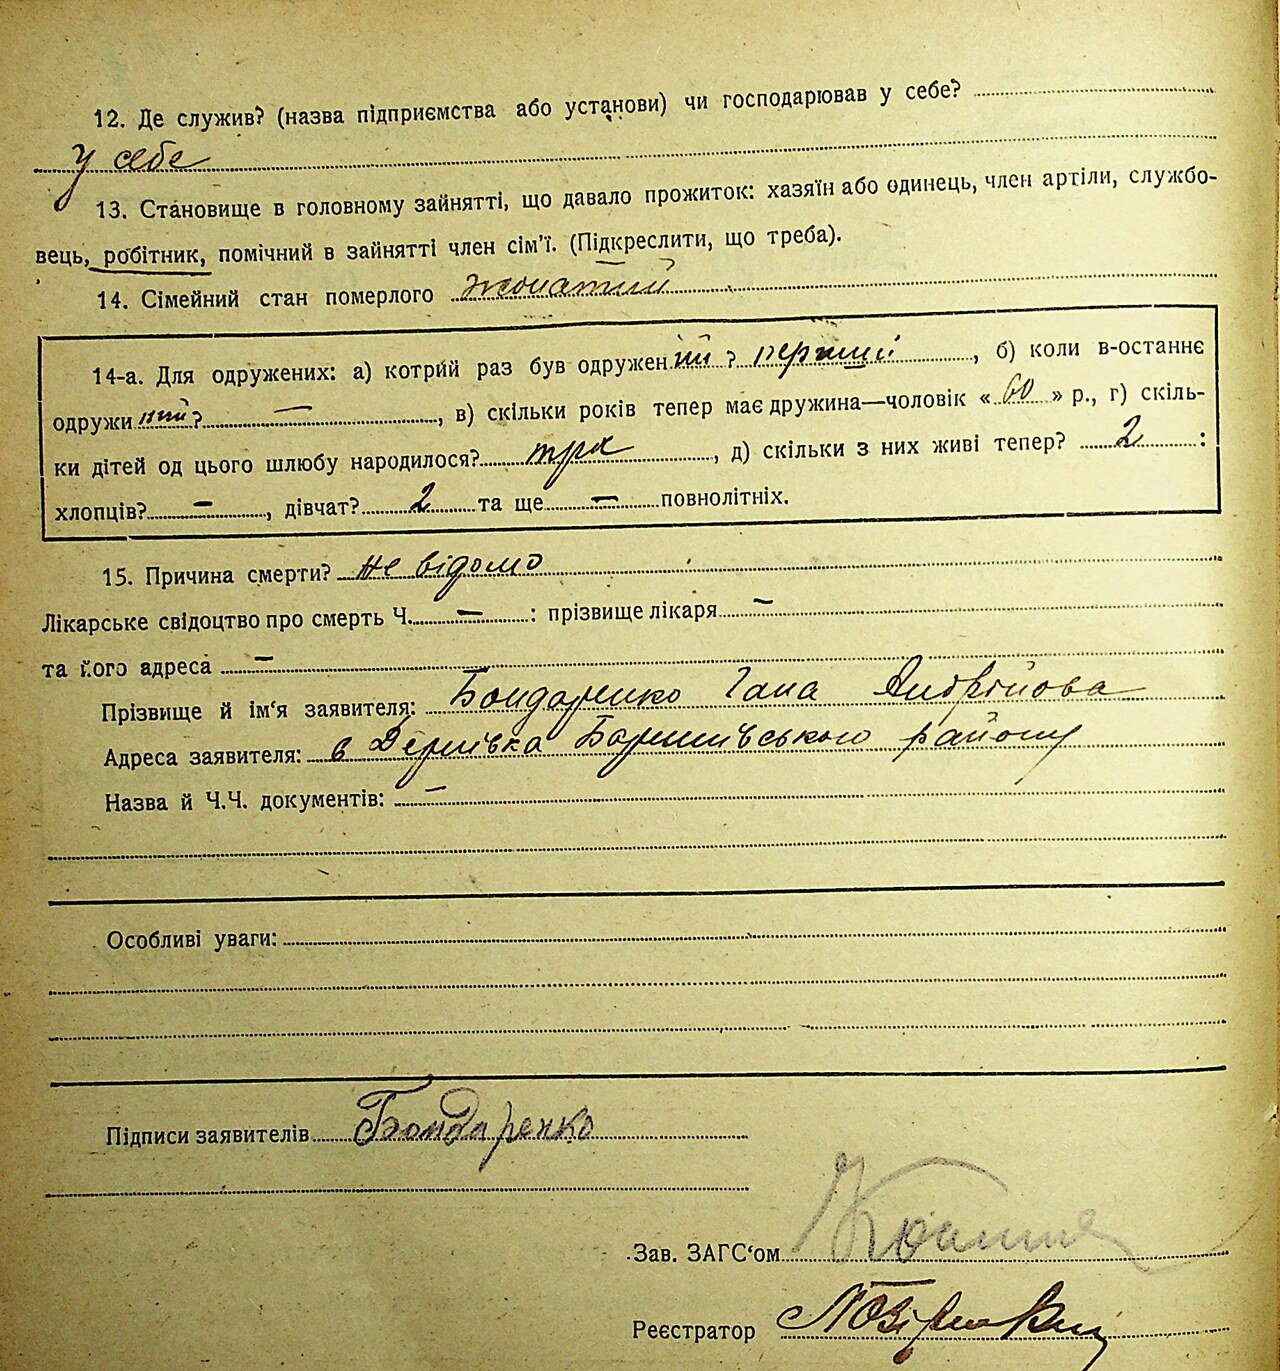 12. Де служив? (назва підприємства або установи) чи господарював у себе?
У себе
13. Становище в головному зайнятті, що давало прожиток: хазяїн або одинець, член артіли, службо-
вець, робітник, помічний в зайнятті член сім'ї. (Підкреслити, що треба).
14. Сімейний стан померлого жонатий
14-а. Для одружених: а) котрий раз був одружен ий ? перший, б) коли в-останнє
одружи ?—, в) скільки років тепер має дружина—чоловік « 60 » р., г) скіль-
ки дітей од цього шлюбу народилося? троє, д) скільки з них живі тепер? 2 :
хлопців? —, дівчат? 2 та ще — повнолітніх.
15. Причина смерти? не відомо
Лікарське свідоцтво про смерть Ч. — : прізвище лікаря —
та його адреса —
Прізвище й ім'я заявителя: Бондаренко Гана Андрійова
Адреса заявителя: в Деріївка Баришівського району
Назва й Ч.Ч. документів: —
Особливі уваги:
Підписи заявителів Бондаренко
Зав. ЗАГС'ом
Реєстратор